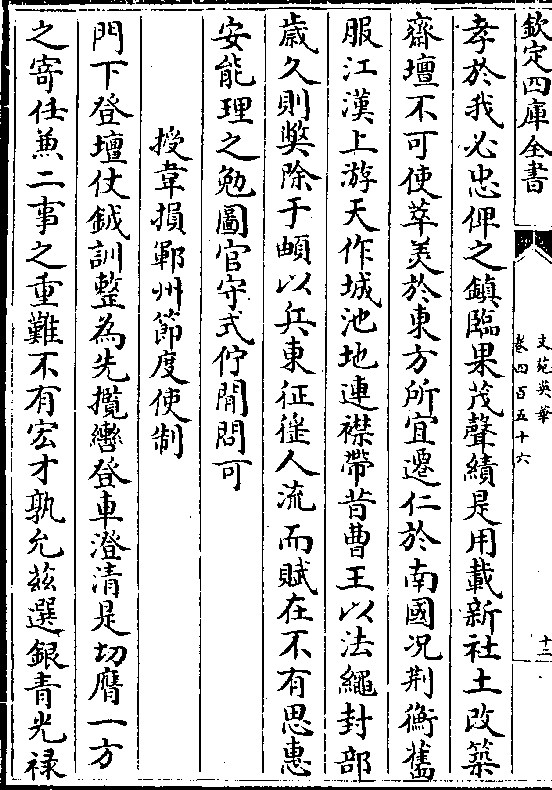 欽定四庫全書
文苑英華
卷四百五十六
十二
孝於我必忠俾之鎮臨果茂聲績是用載新社土改築
齋壇不可使萃美於東方所宜遷仁於南國况荆衡舊
服江漢上游天作城池地連襟帶昔曹王以法繩封部
歳久則弊除于頔以兵東征徭人流而賦在不有思惠
安能理之勉圖官守式佇聞問可
授韋損鄆州節度使制
門下登壇仗鉞訓整為先攬轡登車澄清是切膺一方
之寄任兼二事之重難不有宏才孰允兹選銀青光禄